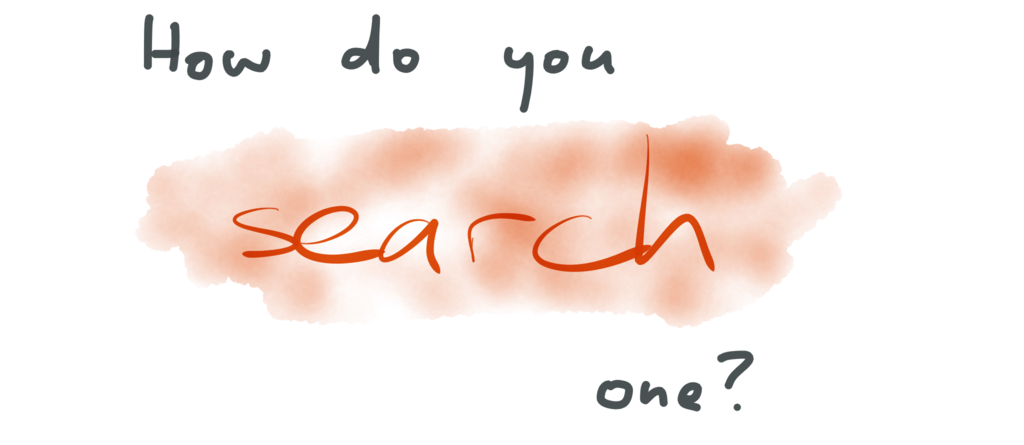 How do you
search
one?